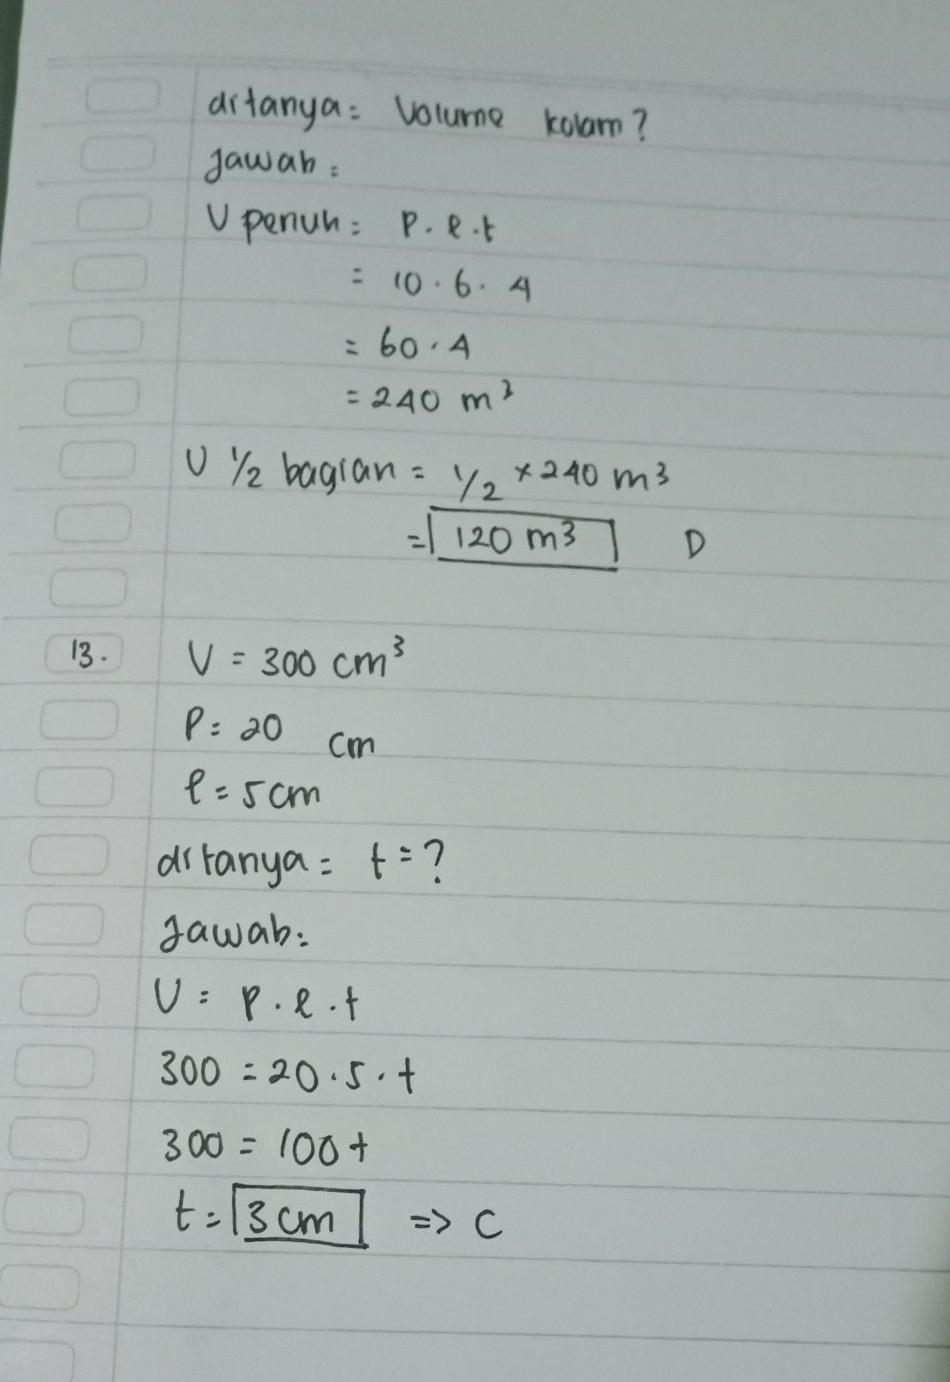 ditanya = Volume kolam?
Jawab :
V penuh = P . l . t
= 10 . 6 . 4
= 60 . 4
= 240 m³
V ½ bagian = 1/2 × 240 m³
= 120 m³ D
13. V = 300 cm³
P = 20 cm
l = 5 cm
ditanya = t = ?
Jawab :
V = P . l . t
300 = 20 . 5 . t
300 = 100 t
t = 3 cm => C